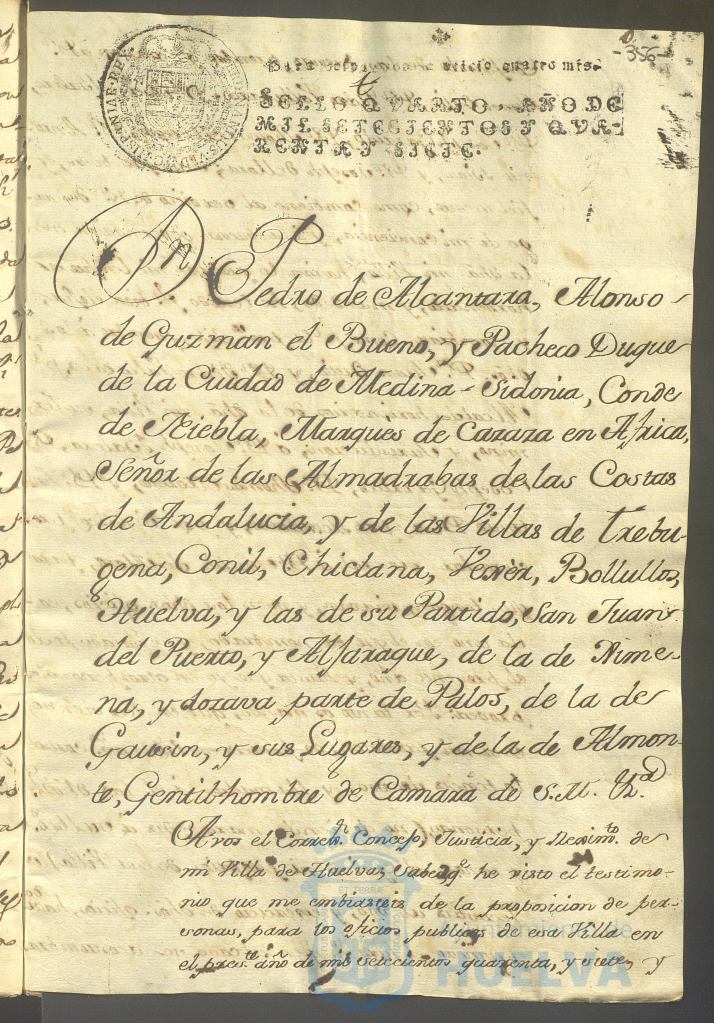 -356-
Para despachos de oficio quatro mrs.
SELLO QVARTO, AÑO DE
MIL SETECIENTOS Y QVA-
RENTA Y SIETE.
Dn Pedro de Alcantara, Alonso
de Guzmàn el Bueno, y Pacheco Duque
de la Ciudad de Medina-Sidonia, Conde
de Niebla, Marques de Cazaza en Africa,
Señor de las Almadrabas de las Costas
de Andalucia, y de las Villas de Trebu-
gena, Conil, Chiclana, Vexèr, Bollullos,
Huelva, y las de su Partido, San Juan
del Puerto, y Alfaraque, de la de Xime-
na, y dozava parte de Palos, de la de
Gausin, y sus Lugares, y de la de Almon-
te, Gentilhombre de Camara de S. M. &a
A vos el Correxr. Concejo, Justicia, y Reximto. de
mi Villa de Huelva, Sabed qe. he visto el testimo-
nio que me embiasteis de la proposicion de per-
sonas, para los oficios publicos de esa Villa en
el preste. año de mil setecientos quarenta, y siete, y
HUELVA